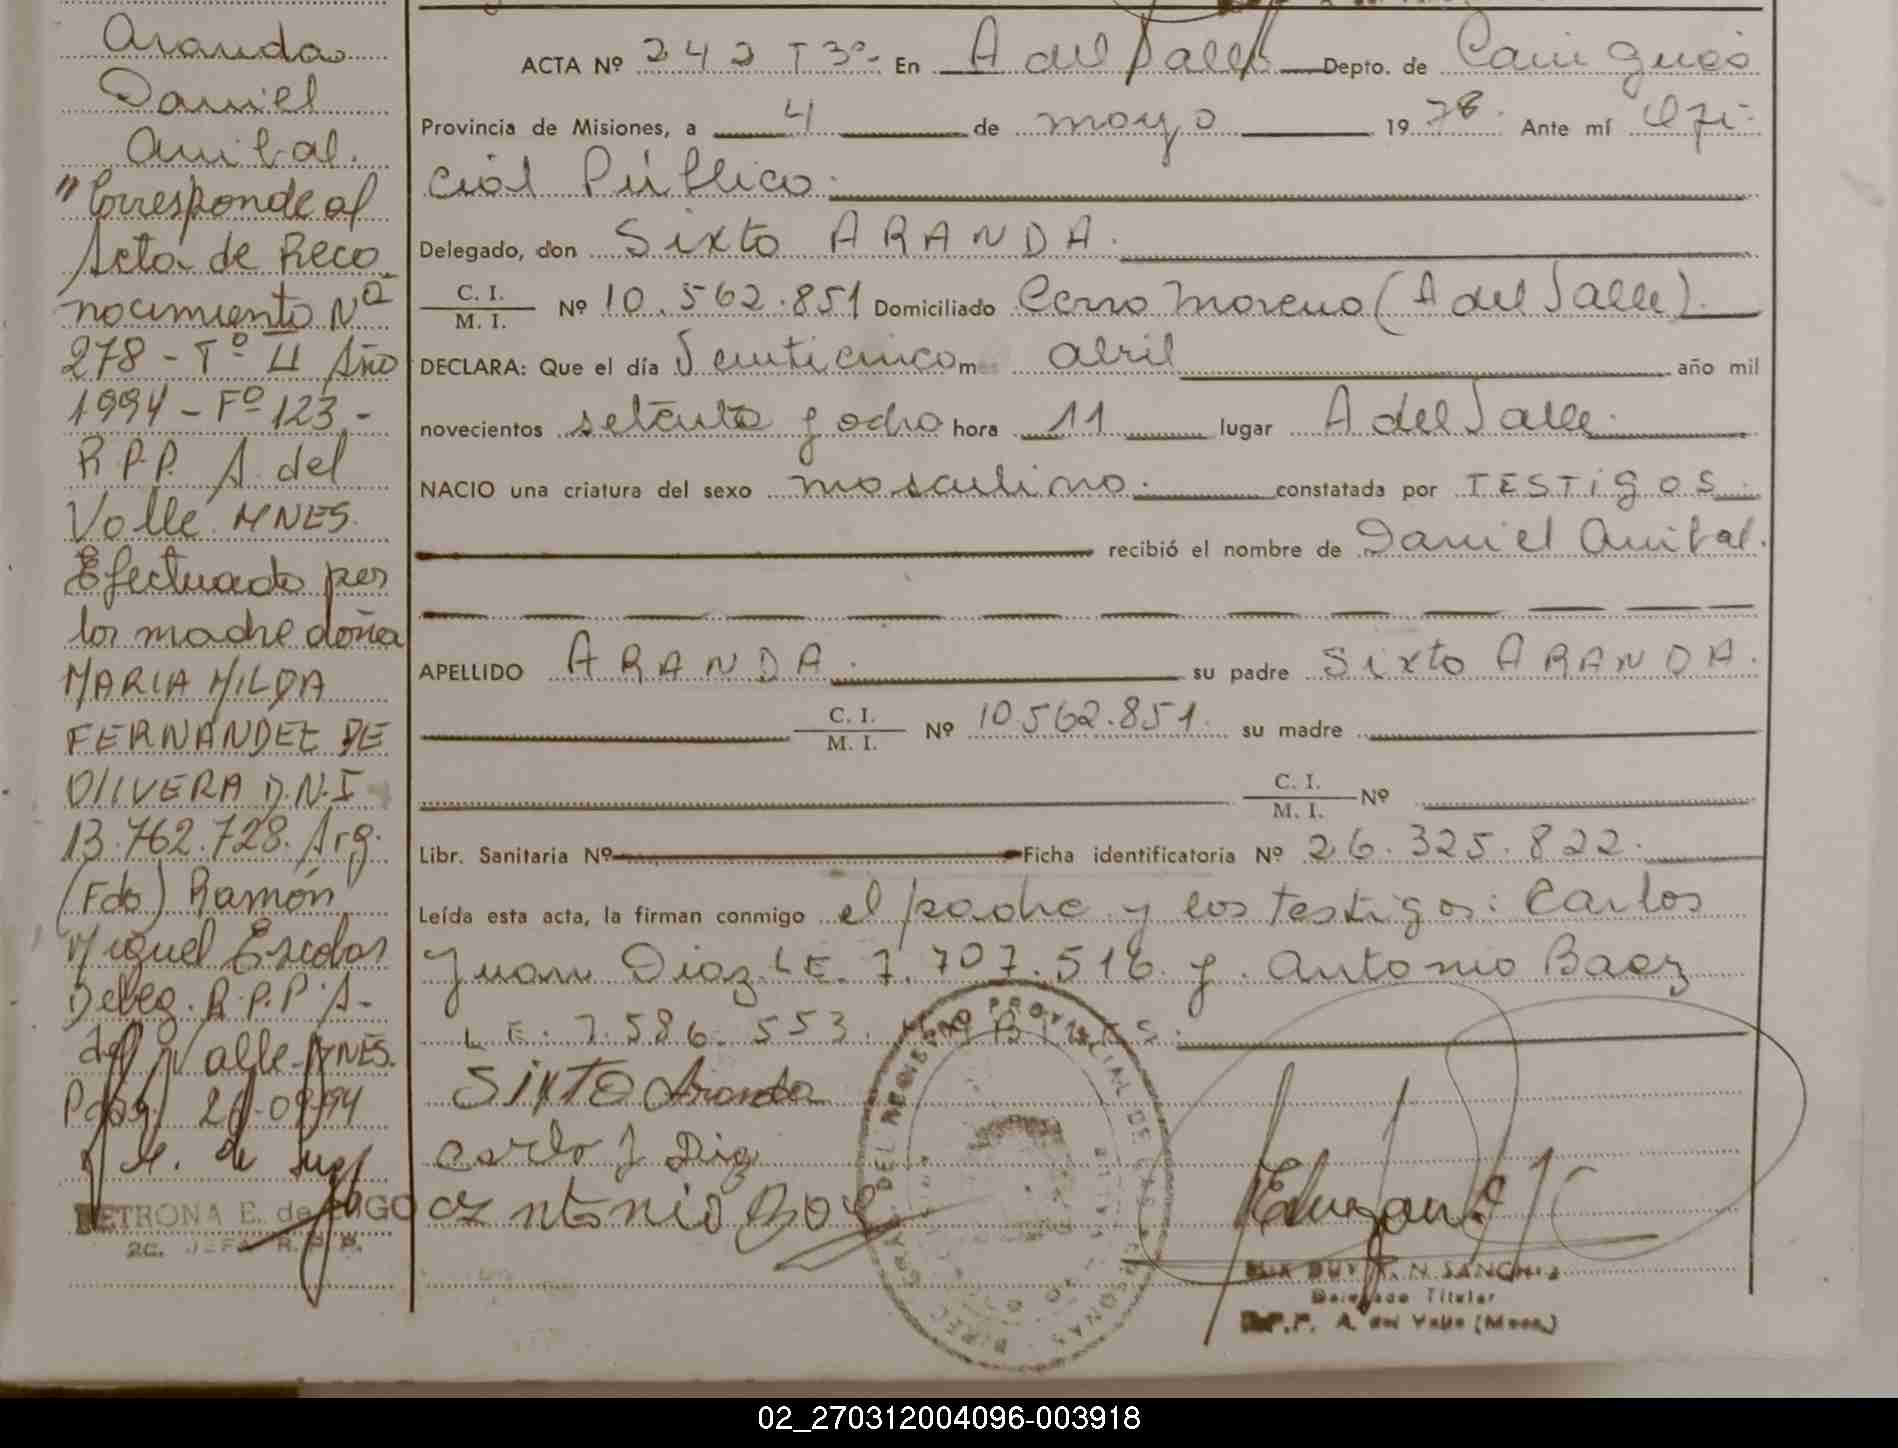 Aranda
Daniel
Anibal.
"Corresponde al
Acta de Reco
nocimiento Nº
278 - Tº II Año
1994 - Fº 123 -
R.P.P. A. del
Valle MNES.
Efectuado por
la madre doña
MARIA HILDA
FERNANDEZ DE
OLIVERA D.N.I
13.762.728. Arg.
(Fdo) Ramón
Miguel Escobar
Deleg. R.P.P. A.
del Valle - MNES.
PETRONA E. de LUGO
2C. JEFA R.P.P.
ACTA Nº 242 T3º- En A del Valle Depto. de Cainguás
Provincia de Misiones, a 4 de mayo 1978. Ante mí Ofi-
cial Público.
Delegado, don Sixto ARANDA.
C. I. / M. I. Nº 10.562.851 Domiciliado Cerro Moreno (A del Valle).
DECLARA: Que el día Veinticinco mes abril año mil
novecientos setenta y ocho hora 11 lugar A del Valle.
NACIO una criatura del sexo masculino. constatada por TESTIGOS.
recibió el nombre de Daniel Anibal.
APELLIDO ARANDA. su padre Sixto ARANDA.
C. I. / M. I. Nº 10.562.851. su madre
C. I. / M. I. Nº
Libr. Sanitaria Nº Ficha identificatoria Nº 26.325.822.
Leída esta acta, la firman conmigo el padre y los testigos: Carlos
Juan Diaz L E. 7.707.516 y Antonio Baez
L.E. 7.586.553.
Sixto Aranda
Carlo J Diaz
Antonio Baez
DEL REGISTRO PROVINCIAL DE LAS PERSONAS
SANCHEZ
Delegado Titular
R.P.P. A. del Valle (Mnes.)
02_270312004096-003918